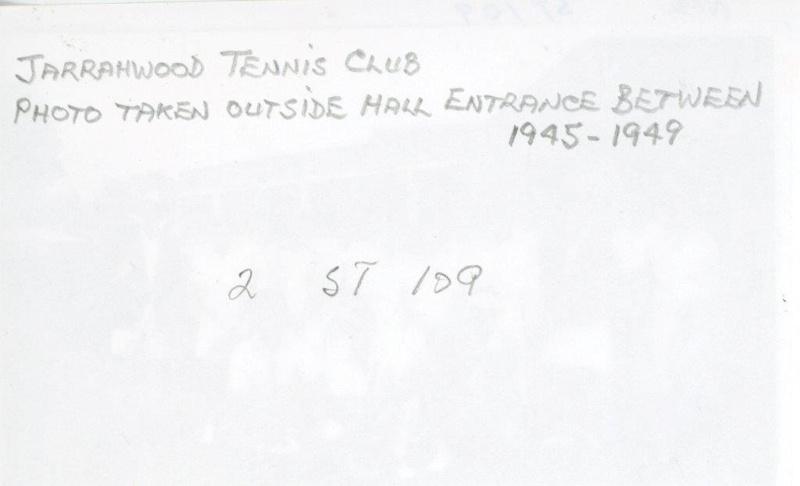 JARRAHWOOD TENNIS CLUB
PHOTO TAKEN OUTSIDE HALL ENTRANCE BETWEEN
1945-1949
2 ST 109